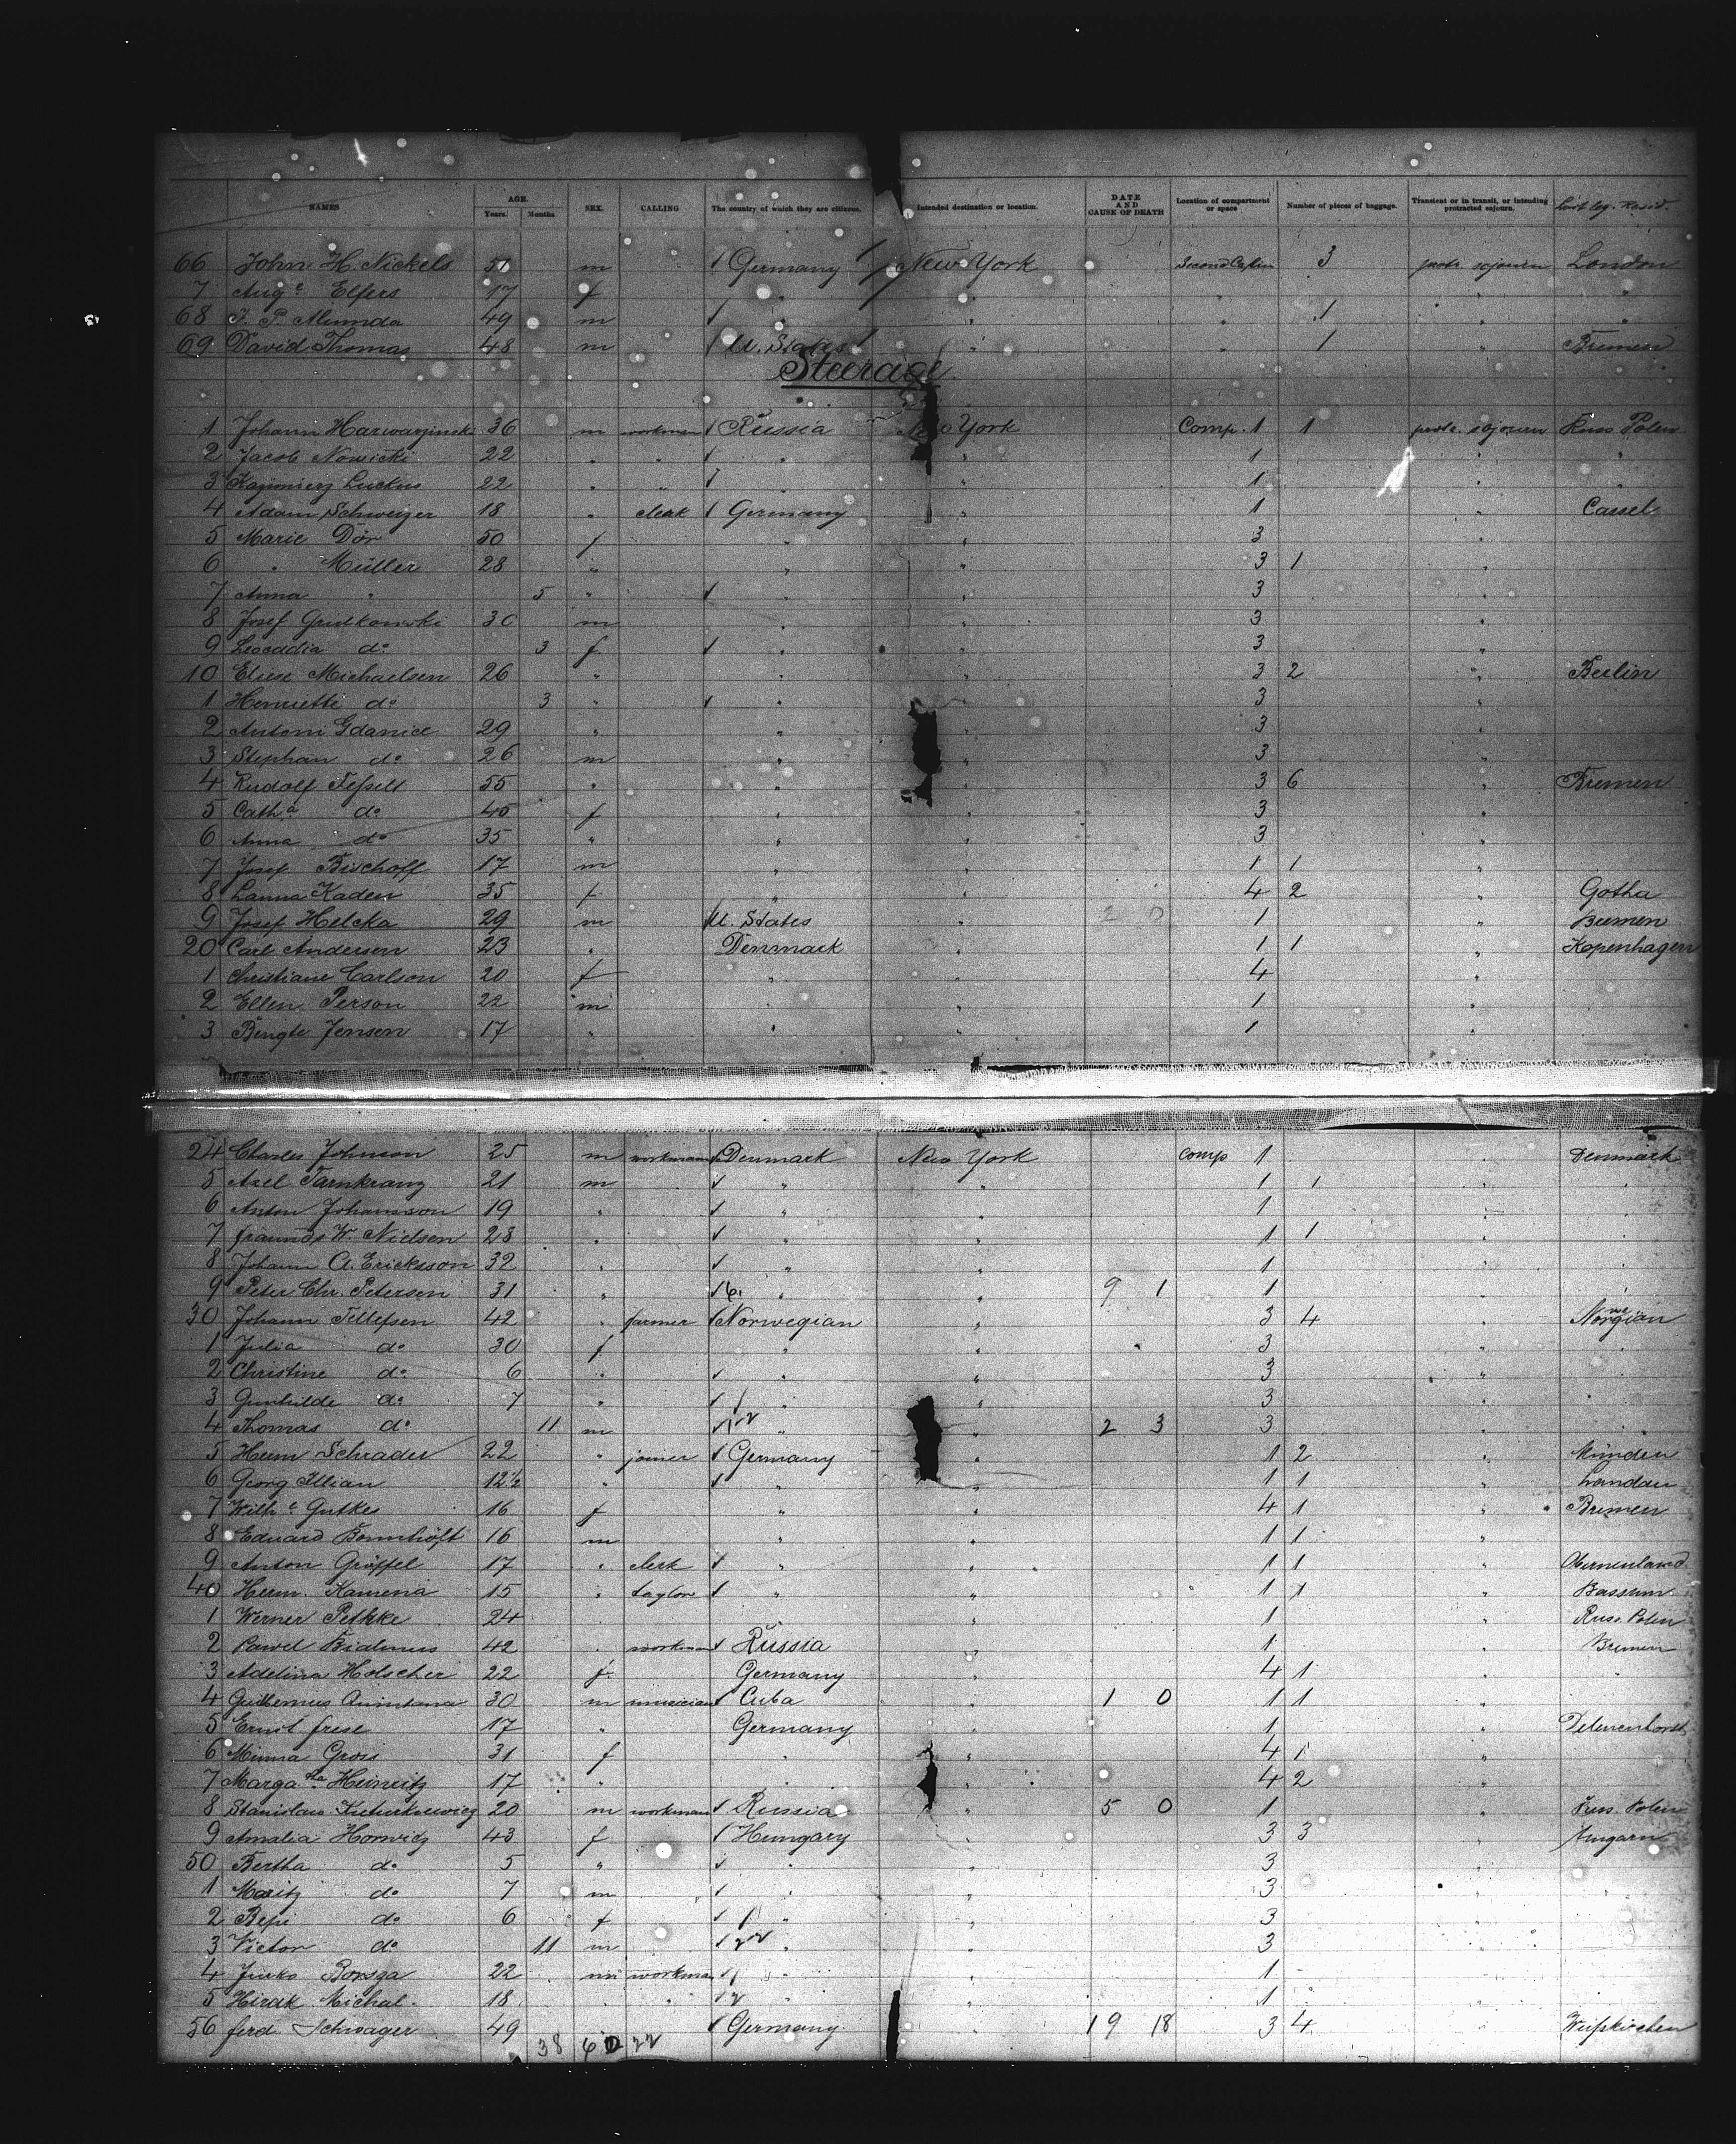 NAMES AGE. Years. Months. SEX. CALLING The country of which they are citizens. Intended destination or location. DATE AND CAUSE OF DEATH Location of compartment or space Number of pieces of baggage. Transient or in transit, or intending protracted sojourn. Last leg. Resid.
66 John H. Nickels 51 m Germany New York Second Cabin 3 protr sojourn London
7 Aug.e Elfers 17 f " " " " "
68 49 m " " " 1 " "
69 David Thomas 48 m U. States " " 1 " Bremen
Steerage
1 Johann 36 m workman Russia New York Comp. 1 1 protr. sojourn Russ Polen
2 Jacob Nowicki 22 " " " " 1 " "
3 Kazimierz Luckus 22 " " " " 1 " "
4 Adam Schweizer 18 " clerk Germany " 1 " Cassel
5 Marie Dör 50 f " " 3 "
6 " Müller 28 " " " 3 1 "
7 Anna " 5 " " " 3 "
8 Josef Grudkowski 30 m " " 3 "
9 Leocadia do 3 f " " 3 "
10 Eliese Michaelsen 26 " " " 3 2 " Berlin
1 Henriette do 3 " " " 3 "
2 Antoni Gdaniec 29 " " " 3 "
3 Stephan do 26 m " " 3 "
4 Rudolf 55 " " " 3 6 " Bremen
5 Cath.a do 45 f " " 3 "
6 Anna do 35 " " 3 "
7 Josef Bischoff 17 m " " 1 1 "
8 Kaden 35 f " " 4 2 " Gotha
9 Josef Helcka 29 m U. States " 2 0 1 " Bremen
20 Carl Andersen 23 " Denmark " 1 1 " Kopenhagen
1 Christiane Carlson 20 f " " 4 "
2 Ellen Person 22 m " " 1 "
3 Bengte Jensen 17 " " " 1 "
24 Charles Johnson 25 m workman Denmark New York comp 1 " Denmark
5 Axel Tarnkranz 21 m " " 1 1 " "
6 Anton Johansson 19 " " " 1 " "
7 W. Nielsen 28 " " " 1 1 " "
8 Johann A. Ericksson 32 " " " 1 " "
9 Peter Chr. Petersen 31 " " " 9 1 1 " "
30 Johann Tellefsen 42 " farmer Norwegian " 3 4 " Norwegian
1 Julia do 30 f " " 3 "
2 Christine do 6 " " " 3 "
3 Gunhilde do 7 " " " 3 "
4 Thomas do 11 m " " 2 3 3 "
5 Herm Schrader 22 " joiner Germany " 1 2 " Münden
6 Georg Illian 12½ " " " 1 1 " Landau
7 Wilh.e Gutkes 16 f " " 4 1 " Bremen
8 Eduard Bornhöft 16 m " " 1 1 "
9 Anton Gröffel 17 " clerk " " 1 1 " Oberneuland
40 Herm. Kamena 15 " taylor " " 1 1 " Bassum
1 Werner Pethke 24 " 1 " Russ. Polen
2 Pawel 42 " workman Russia " 1 " Bremen
3 Adelina Holscher 22 f. Germany " 4 1 " "
4 Quintana 30 m musician Cuba " 1 0 1 1 "
5 Ernst Frese 17 " Germany " 1 " Delmenhorst
6 Minna Gross 31 f " " 4 1 "
7 Marga.tha Heineitz 17 " " " 4 2 "
8 Stanislaw 20 m workman Russia " 5 0 1 " Russ. Polen
9 Amalia Horwitz 43 f Hungary " 3 3 " Ungarn
50 Bertha do 5 " " 3
1 Moritz do 7 m " " 3
2 Bepi do 6 f " " 3
3 Victor do 11 m " " 3
4 Janko Borsza 22 m workman " " 1
5 Hirak Michal. 18 " " " " 1
56 Ferd. Schwager 49 Germany " 19 18 3 4 Weißkirchen
38 60 22